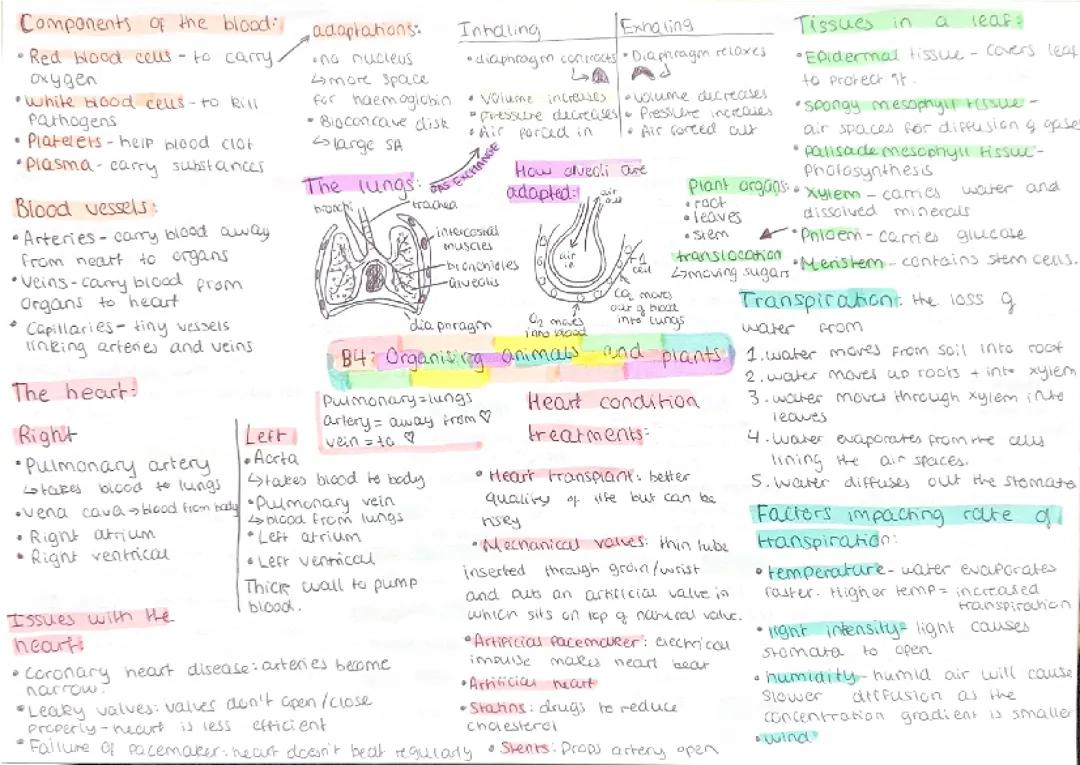 Components of the blood:
• Red blood cells - to carry
oxygen
• White blood cells - to kill
pathogens
• Platelets - help blood clot
• Plasma - carry substances
adaptations:
• no nucleus
↳ more space
for haemoglobin
• Bioconcave disk
↳ large SA
Inhaling
• diaphragm contracts
• volume increases
• pressure decreases
• Air forced in
Exhaling
• Diaphragm relaxes
• volume decreases
• Pressure increases
• Air forced out
Blood vessels:
• Arteries - carry blood away
from heart to organs
• Veins - carry blood from
organs to heart
• Capillaries - tiny vessels
linking arteries and veins
The lungs:
GAS EXCHANGE
bronchi
trachea
intercostal
muscles
bronchioles
alveolis
diaphragm
How alveoli are
adapted:
air
out
air
in
1
cell
CO₂ moves
out of blood
into lungs
O₂ moves
into blood
Plant organs:
• root
• leaves
• stem
translocation
↳ moving sugars
Tissues in a leaf:
• Epidermal tissue - covers leaf
to protect it.
• spongy mesophyll tissue -
air spaces for diffusion of gases
• palisade mesophyll tissue -
Photosynthesis
• Xylem - carries water and
dissolved minerals
• Phloem - carries glucose
• Meristem - contains stem cells.
B4: Organising animals and plants
The heart:
Right
• Pulmonary artery
↳ takes blood to lungs
• vena cava → blood from body
• Right atrium
• Right ventrical
Left
• Aorta
↳ takes blood to body
• Pulmonary vein
↳ blood from lungs
• Left atrium
• Left ventrical
Thick wall to pump
blood.
Pulmonary = lungs
artery = away from ♡
vein = to ♡
Issues with the
heart:
• Coronary heart disease: arteries become
narrow.
• Leaky valves: valves don't open/close
properly - heart is less efficient
• Failure of pacemaker: heart doesn't beat regularly
Heart condition
treatments:
• Heart transplant: better
quality of life but can be
risky
• Mechanical valves: thin tube
inserted through groin/wrist
and puts an artificial valve in
which sits on top of natural value.
• Artificial pacemaker: electrical
impulse makes heart beat
• Artificial heart
• Statins: drugs to reduce
cholesterol
• Stents: Props artery open
Transpiration: the loss of
water from
1. water moves from soil into root
2. water moves up roots + into xylem
3. water moves through xylem into
leaves
4. Water evaporates from the cells
lining the air spaces.
5. Water diffuses out the stomata
Factors impacting rate of
transpiration:
• temperature - water evaporates
faster. Higher temp = increased
transpiration
• light intensity - light causes
stomata to open
• humidity - humid air will cause
slower diffusion as the
concentration gradient is smaller
• wind